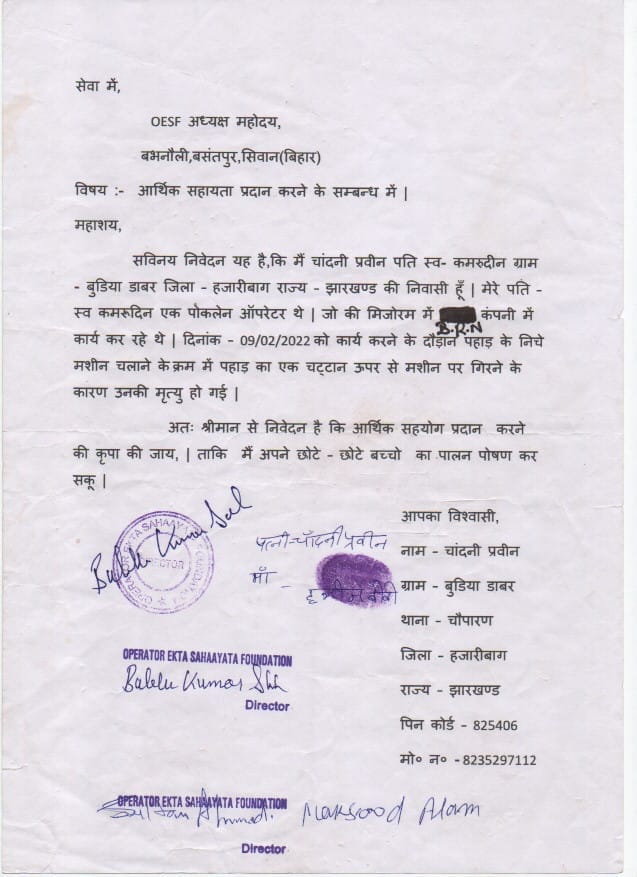 सेवा में,
OESF अध्यक्ष महोदय,
बभनौली,बसंतपुर,सिवान(बिहार)
विषय :- आर्थिक सहायता प्रदान करने के सम्बन्ध में |
महाशय,
सविनय निवेदन यह है,कि मैं चांदनी प्रवीन पति स्व- कमरुदीन ग्राम
- बुडिया डाबर जिला - हजारीबाग राज्य - झारखण्ड की निवासी हूँ | मेरे पति -
स्व कमरूदिन एक पोकलेन ऑपरेटर थे | जो की मिजोरम में कंपनी में
B.R.N
कार्य कर रहे थे | दिनांक - 09/02/2022 को कार्य करने के दौड़ान पहाड़ के निचे
मशीन चलाने के क्रम में पहाड़ का एक चट्टान ऊपर से मशीन पर गिरने के
कारण उनकी मृत्यु हो गई |
अतः श्रीमान से निवेदन है कि आर्थिक सहयोग प्रदान करने
की कृपा की जाय, | ताकि मैं अपने छोटे - छोटे बच्चो का पालन पोषण कर
सकू |
OPERATOR EKTA SAHAAYATA FOUNDATION
DIRECTOR
Bablu Kumar
पत्नी-चाँदनी प्रवीन
माँ -
बीबी
आपका विश्वासी,
नाम - चांदनी प्रवीन
ग्राम - बुडिया डाबर
थाना - चौपारण
जिला - हजारीबाग
राज्य - झारखण्ड
पिन कोर्ड - 825406
मो० न० - 8235297112
OPERATOR EKTA SAHAAYATA FOUNDATION
Bablu Kumar
Director
OPERATOR EKTA SAHAAYATA FOUNDATION
Maksood Alam
Director